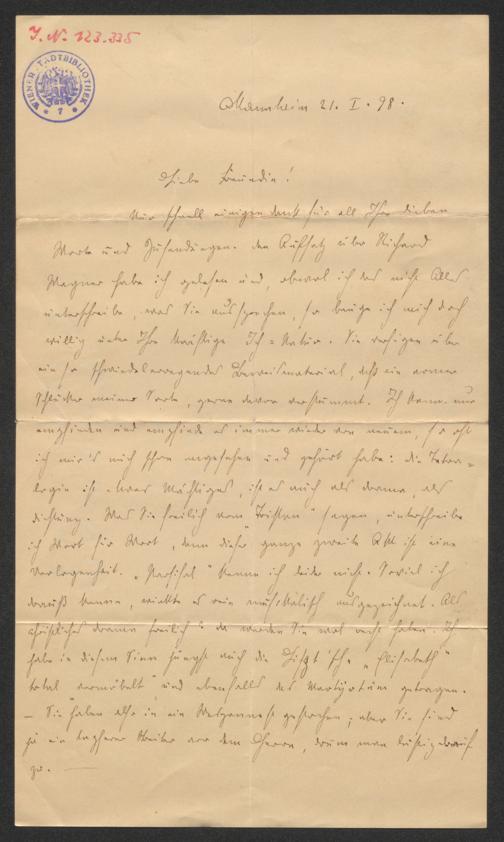 J. N. 123.335
WIENER STADTBIBLIOTHEK
* 7 *
Mannheim 21. I. 98.
Liebe Freundin!
Nur schnell einigen Dank für all Ihre lieben
Worte und Zusendungen. Den Aufsatz über Richard
Wagner habe ich gelesen und, obwol ich das nicht Alles
unterschreibe, was Sie aussprechen, so beuge ich mich doch
willig unter Ihre kräftige Ich=Natur. Sie verfügen über
ein so schwindelerregendes Beweismaterial, daß ein armer
Schlucker meiner Sorte, gerne davor verstummt. Ich kann nur
empfinden und empfinde es immer wieder von neuem, so oft
ich mir's auch schon angesehen und gehört habe: die Tetra=
logie ist etwas Mächtiges, ist es auch als Drama, als
Dichtung. Was Sie freilich vom "Tristan" sagen, unterschreibe
ich Wort für Wort, denn dieser ganze zweite Akt ist eine
Verlegenheit. "Parsifal" kenne ich leider nicht. Soviel ich
draus kenne, wirkte es rein musikalisch ausgezeichnet. Als
christliches Drama freilich? da werden Sie wol recht haben. Ich
habe in diesem Sinn jüngst auch die Liszt'sche "Elisabeth"
total und ebenfalls das Martyrium getragen.
— Sie haben also in ein Wespennest gestochen; aber Sie sind
ja ein tapferer Streiter vor dem Herrn, drum man lustig drauf
zu. —